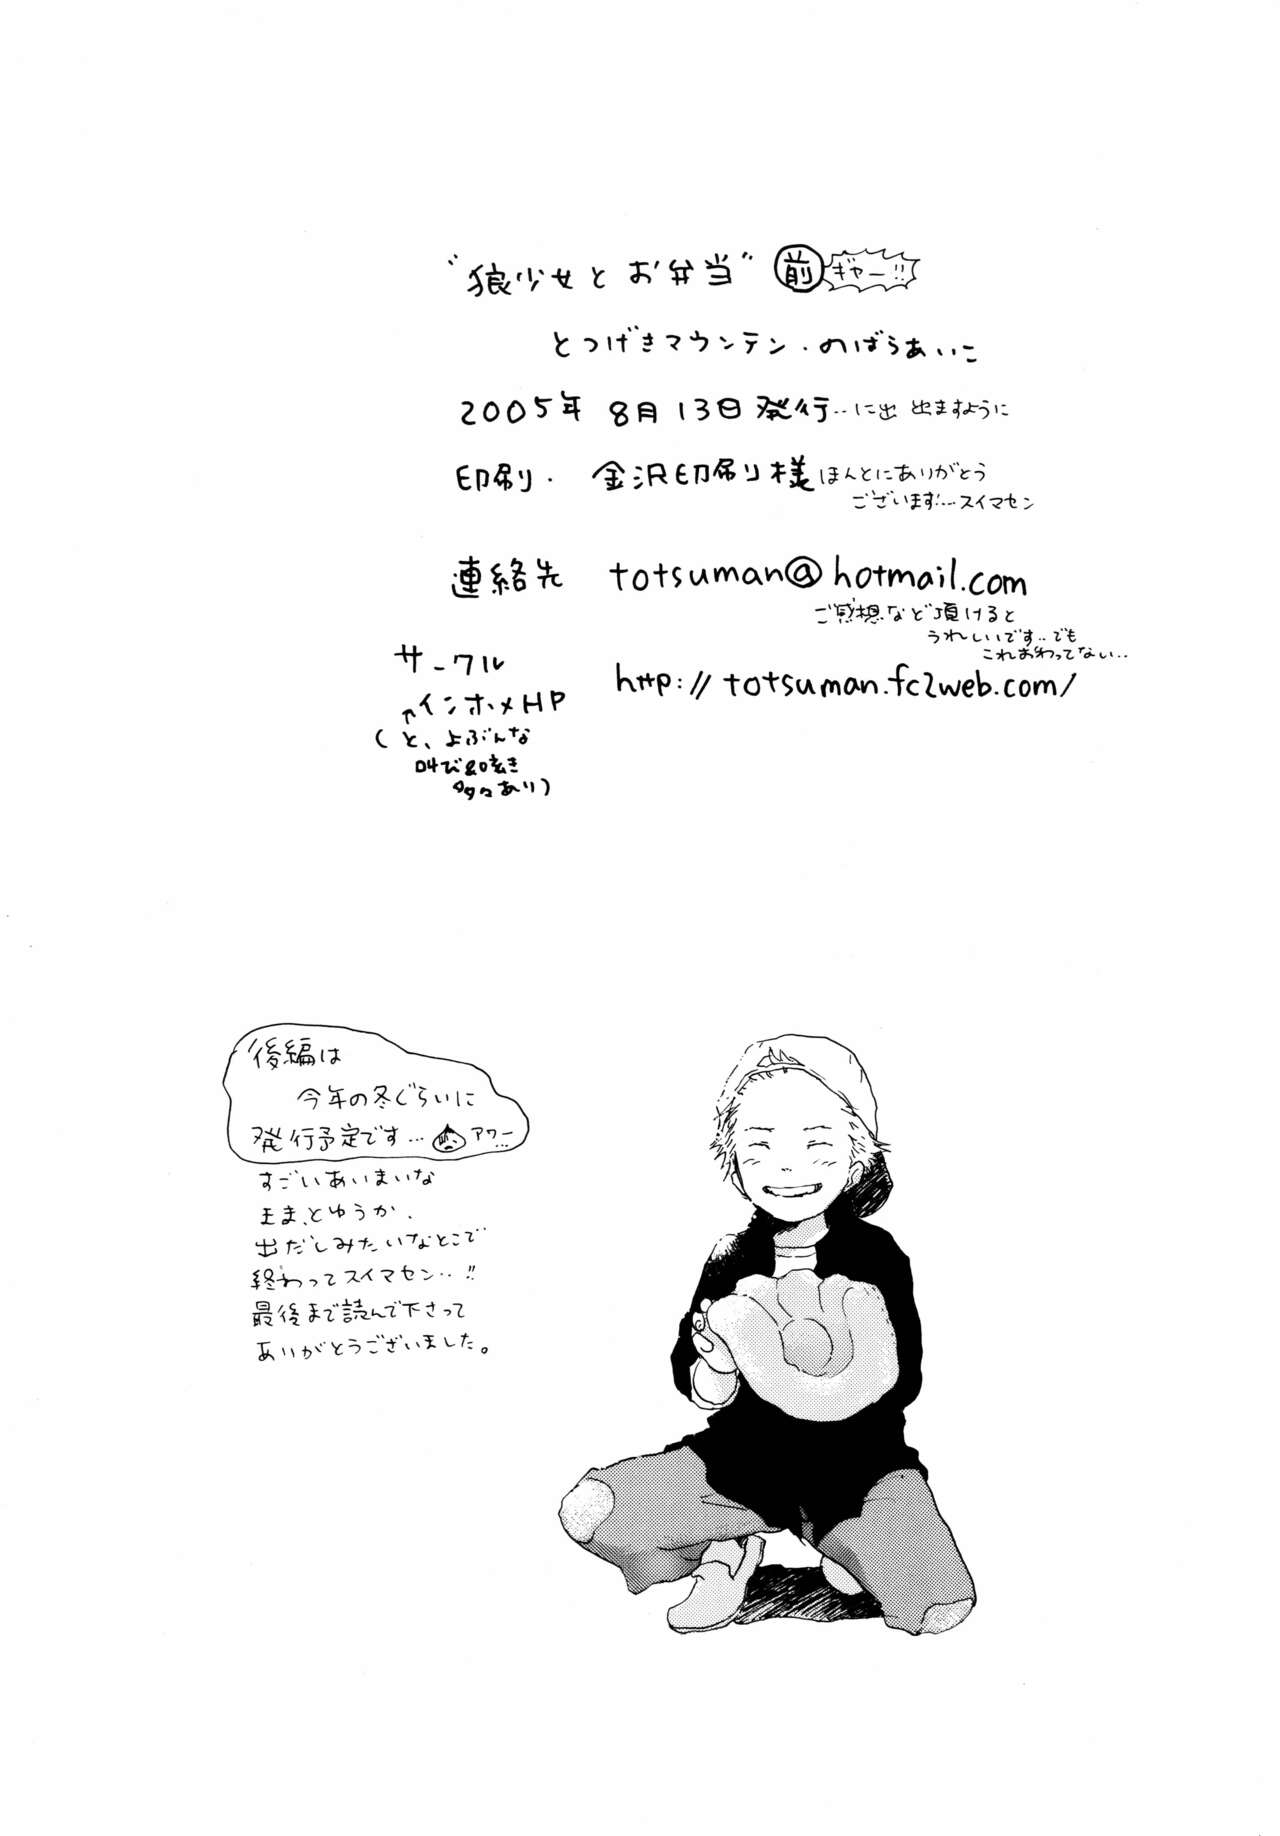 "狼少女とお弁当" 前 ギャー!!
とつげきマウンテン・のばらあいこ
2005年 8月13日発行‥に出 出ますように
印刷・ 金沢印刷様 ほんとにありがとう
ございます!…スイマセン
連絡先 totsuman@hotmail.com
ご感想など頂けると
うれしいです‥でも
これおわってない‥
サークル
↑インホメHP
http://totsuman.fc2web.com/
(と、よぶんな
叫び&呟き
多々あり)
後編は
今年の冬ぐらいに
発行予定です… アワー…
すごいあいまいな
まま、とゆうか、
出だしみたいなとこで
終わってスイマセン‥!!
最後まで読んで下さって
ありがとうございました。